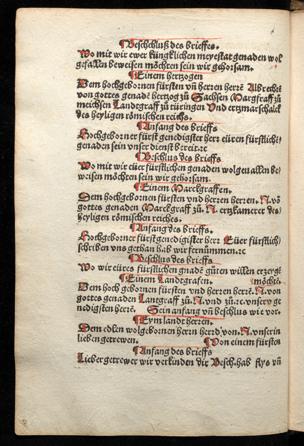 ¶Beschluß des brieffes.
Wo mit wir ewer künglichen meyestat genaden wol
gefallen beweisen möchten sein wir gehorsam.
¶Einem hertzogen
Dem hochgebornen fürsten vñ herren herrẽ Albrecht
von gottes genadẽ hertzog zů Sachsen Margraff zů
meichsen Landtgraff zů türingen Und ertzmarschalck
des heyligen römischen reichs.
¶Anfang des brieffs
Hochgeborner fürst genedigister herr eüren fürstlichẽ
genaden sein vnser dienst bereit.ꝛc
¶Beschlus des brieffs.
Wo mit wir eüer fürstlichen genaden wolgenallen be
weisen möchten sein wir gehorsam.
¶Einem Marckgraffen.
Dem hochgebornen fürsten vnd herren herren. N. võ
gottes genaden Marckgraff zů. N. ertzkamerer des
heyligen römischen reiches.
¶Anfang des brieffs.
Hochgeborner fürst genedigister herr Eüer fürstlich
schreiben vns gethan hab wir fernümmen.ꝛc
¶Beschlus des brieffs.
Wo wir eüres fürstlichen gnadẽ gůten willen ertzeigẽ
¶Einem Landtgrafen. möchtẽ.
Dem hoch gebornen fürsten vnd herren herrẽ. N. von
gottes genaden Lantgraff zů. N. vnd zů ꝛc. vnserv ge
nedigisten herrẽ. Sein anfang vñ beschlus wie vor.
¶Eym landt herren.
Dem edlen wolgebornen herrn herrd von. N. vnserin
lieben getrewen. ¶Von einem fürsten
¶Anfang des brieffs
Lieber getrewer wir verkünden dir Besch. hab